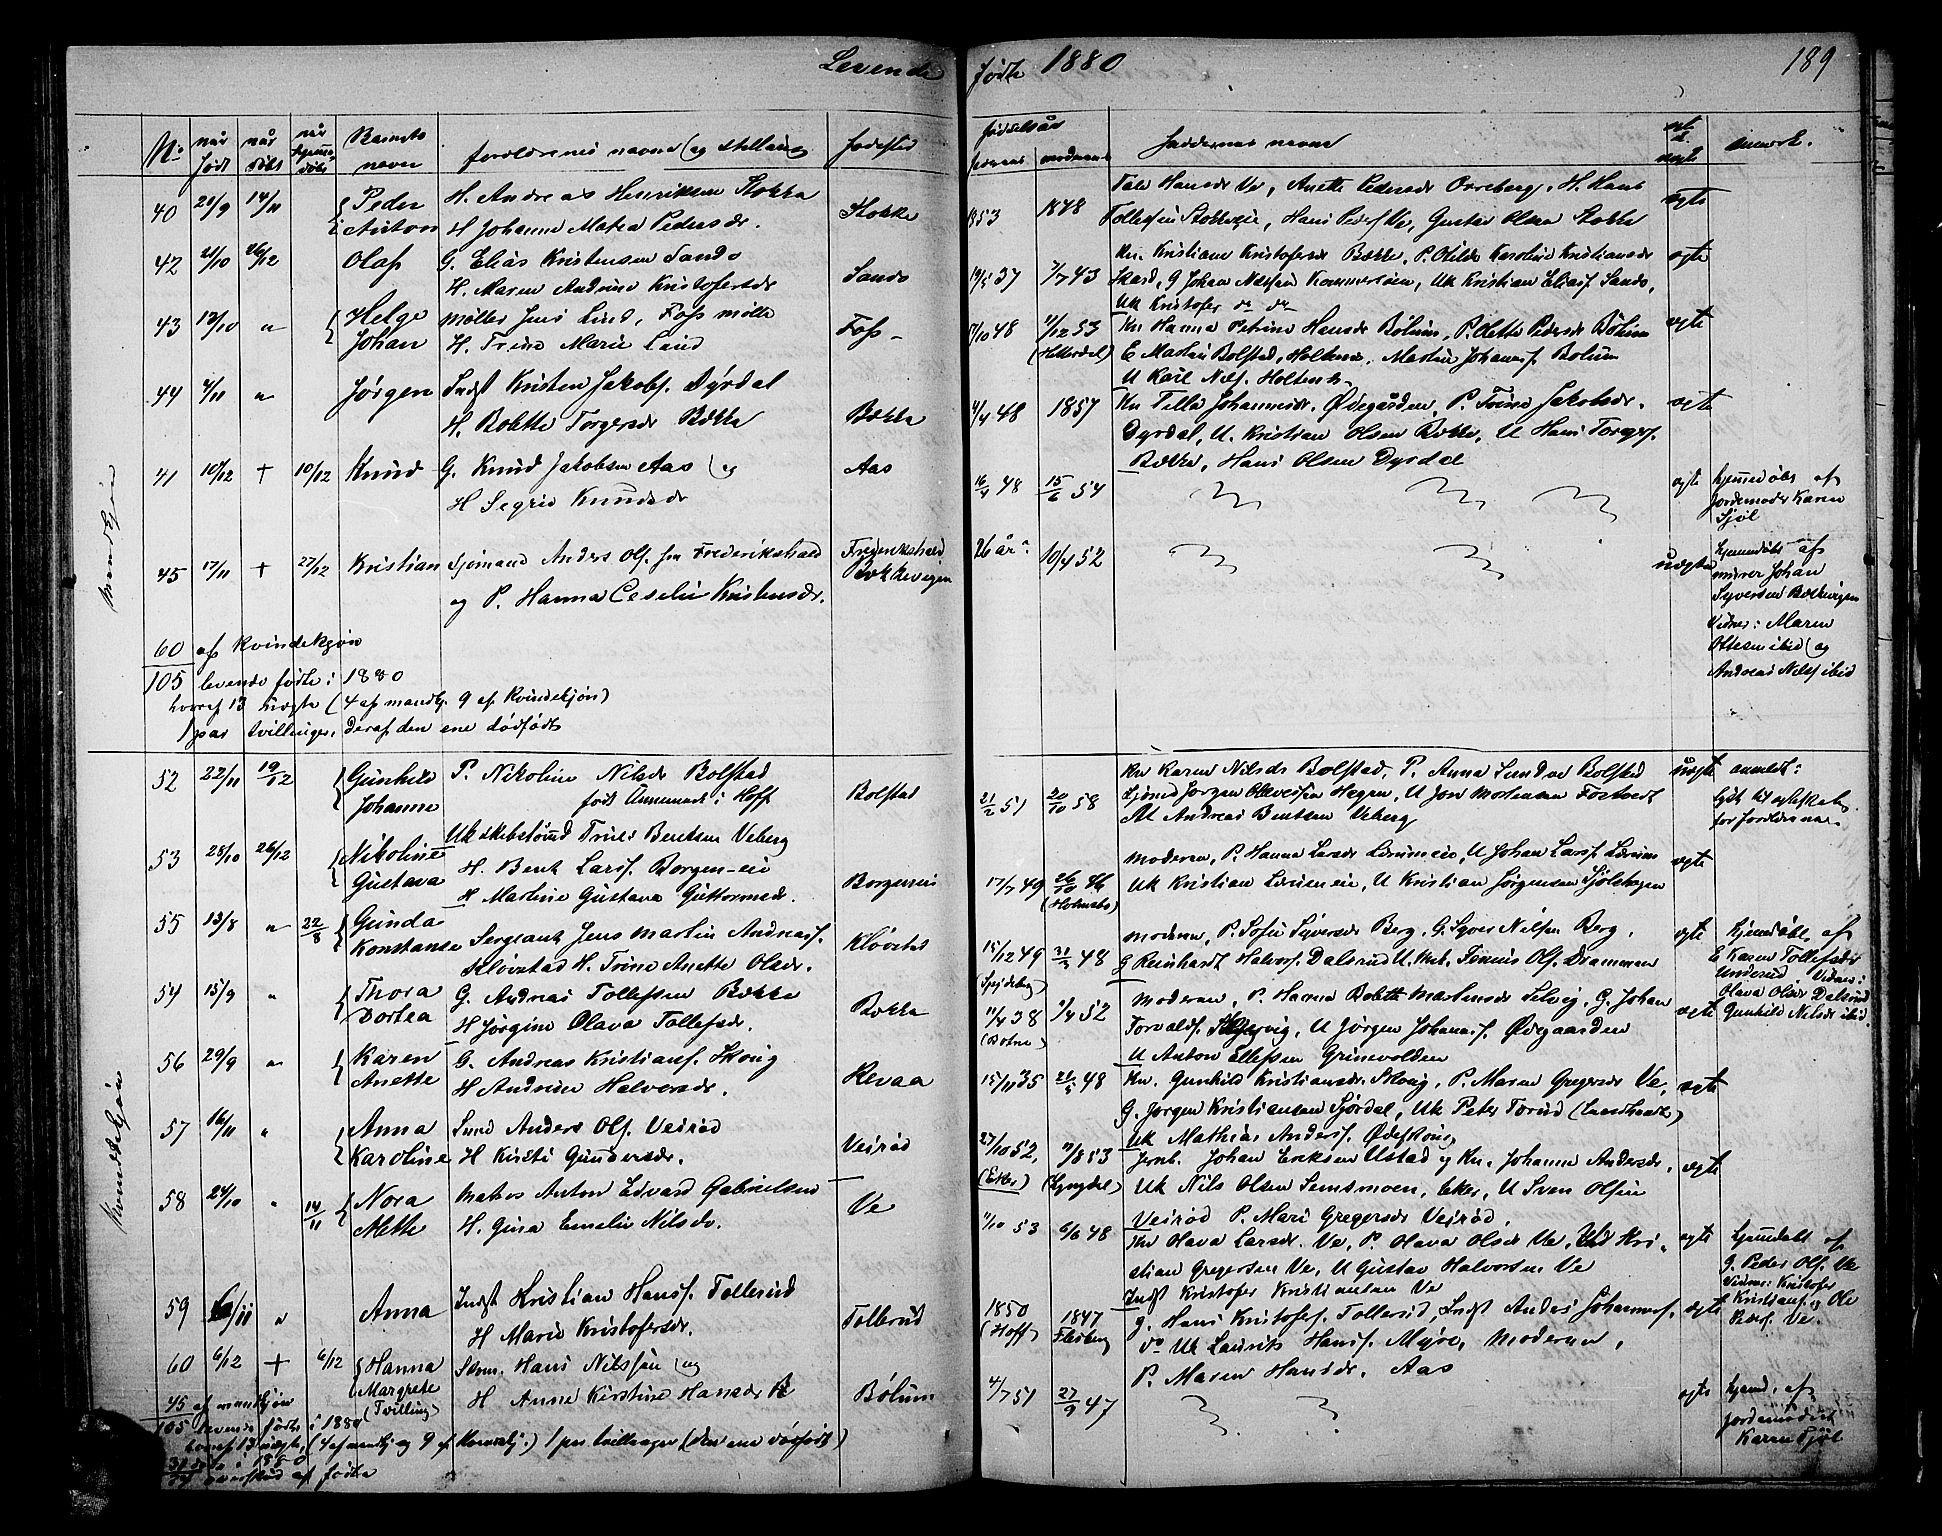 Levende fødte 1880
189
No når født når døbt når hjemmedøbt Barnets navn forældrenes navne (og stilling) fødested
fødselsår faderens moderens Faddernes navne anmerk.
Mandkjøn
40 28/9 14/11 Peder Anton H. Andreas Henriksen Stokke
H Johanne Matea Pedersdr. Stokke
1853 1848 Hansdr Ve, Anette Pedersdr Orreberg, H. Hans
Tollefsen Stokke, Hans Peders. Ve, Gustav Olsen Stokke
ægte
42 2/10 26/12 Olaf G. Elias Kristensen Sando
H. Maren Andrine Kristofersdr Sando
19/5 37 7/7 43 Kn. Kristiane Kristofersdr Bække, P. Otilde Karoline Kristiansdr
Skard, G Johan Uk Kristian Eliass. Sando,
Uk Kristofer do do
ægte
43 12/10 " Helge Johan møller Jens Lund, Foss mølle
H. Trine Marie Lund Foss
5/10 48 11/12 53 (Hitterdal) Kn Hanna Petrine Hansdr Bølum, P. Mette Pedersdr Bölum
E Martin Bolstad, Holtene, Martin Johanss. Bolum
U Karl Nils. Holtene
ægte
44 4/11 " Jørgen Indst Kristen Jakobs. Dyrdal
H. Bolette Torgersdr Bække Bække
4/4 48 1857 Kn Tella Johannesdr. Ødegården, P. Trine Jakobsdr.
Dyrdal, U. Kristian Olsen Bække, U Hans Torgers.
Bække, Hans Olsen Dyrdal
ægte
41 10/12 + 10/12 Knud G. Knud Jakobsen Aas (og
H Segrid Knudsdr Aas
16/4 48 15/6 54 ægte hjemdøbt af
Jordemoder Karen
Sjøl
45 17/11 + 27/12 Kristian Sjømand Anders Ols. fra Frederikshald
og P. Hanna Ceselie Kristensdr. Frederikshald
Bækkevigen
26 år 10/4 52 uægte hjemdøbt af
murer Johan
Syversen Bækkevigen
Vidner: Maren
Ottesen ibid (og
Andreas Nilss ibid
60 af Kvindekjøn
105 levende fødte i 1880
hvoraf 13 uægte (4 af mandkj. 9 af Kvindekjøn)
1 par tvillinger, deraf den ene dødfødt
Kvindekjøn
52 22/11 19/12 Gunhild Johanne P. Nikoline Nilsdr Bolstad
født Annemoed i Hoff Bolstad
21/2 51 20/10 58 Kn Karen Nilsdr Bolstad, P. Anna Lund av Bolstad
Jørgen Hagen, U Jon Mortensen Fostvedt
M Andreas Bentsen Veberg
uægte anmeldt:
lyst til ægteskab
for forældrene.
53 28/10 26/12 Nikoline Gustava Uk skibstømd Truls Bentsen Veberg
H. Bent Larss. Borgen-eie
H Martine Gustava Guttormsdr. Borgeneie
17/7 49 26/10 46 (Holmsbo) moderen, P. Hanna Larsdr , U Johan Larss.
Uk Kristian , U Kristian Jørgensen Sjølshagen
ægte
55 13/8 " 22/8 Gunda Konstanse Sergeant Jens Martin Andreass.
Kløvstad H. Trine Anette Olsdr. Kløvstad
15/12 49 (Spydeberg) 31/3 48 moderen, P. Sofie Syversdr Berg, G. Syver Nilsen Berg,
G Reinhardt Halvors. Dalsrud U. Mat. Tinius Ols. Drammen
ægte hjemdøbt af
E Karen Tollefsdr
Underud Vidner:
Olava Olsdr Dalsrud
Gunhild Nilsdr ibid.
54 15/9 " Thora Dortea G. Andreas Tollefsen Bække
H Jørgine Olava Tollefsdr. Bække
11/4 38 (Botne) 1/4 52 moderen, P. Hanna Bolette Martinsdr Selvig, G. Johan
Torvalds. , U Jørgen Johanss. Ødegaarden
U Anton Ellefsen Grinevolden
ægte
56 29/9 " Karen Anette G. Andreas Kristians. Skoug
H Andrine Halversdr. Revaa
15/11 35 21/5 48 Kn. Gunhild Kristiansdr. Skoug, P. Maren Gregersdr Ve,
G. Jørgen Kristiansen Sjørdal, Uk Peter Torud (Landhandl)
Uk Mathias Anderss. Ødeskoug
ægte
57 16/11 " Anna Karoline Lund Anders Ols. Veirød
H Kirsti Gundersdr. Veirød
27/10 52, (Eker) 17/8 53 (Lyngdal) Jernb. Johan Eriksen Ustad og Kn. Johanne Andersdr.
Uk Nils Olsen Semsmoen, Eker, U Sven Olsen
Veirød P. Mari Gregersdr Veirød.
ægte
58 24/10 " 14/11 Nora Mette Matros Anton Edvard Gabrielsen
H. Gina Emelie Nilsdr. Ve
1/10 53 6/6 48 Kn Olava Larsdr. Ve, P. Olava Olsdr Ve, Kri-
stian Gregersen Ve, U Gustav Halvorsen Ve
Indst Kristofer Kristiansen Ve
ægte hjemdøbt af
G. Peder Ols. Ve
Vidner: Kristofer
Kristians. og Ole
Peders. Ve.
59 6/11 " Anna Indst Kristian Hanss. Tollerud
H Marie Kristofersdr. Tollerud
1850 (Hoff) 1847 Flesberg G. Hans Kristofers. Tollerud, Indst Anders Johanness.
do Uk Laurits Hanss. Myre, moderen,
P. Maren Hansdr. Aas
ægte
60 6/12 + 6/12 Hanna Margrete (Tvilling) Hans Nilssen (og
H Anne Kirstine Hansdr Bölum
4/7 51 27/9 47 ægte hjemd. af
jordemoder
Karen Sjøl
45 af mandkjøn
105 levende fødte i 1880
hvoraf 13 uægte, (4 af mandkj og 9 af Kvindekj.) 1 par tvillinger (den ene dødfødt)
31 døde i 1880
74 overskud af fødte